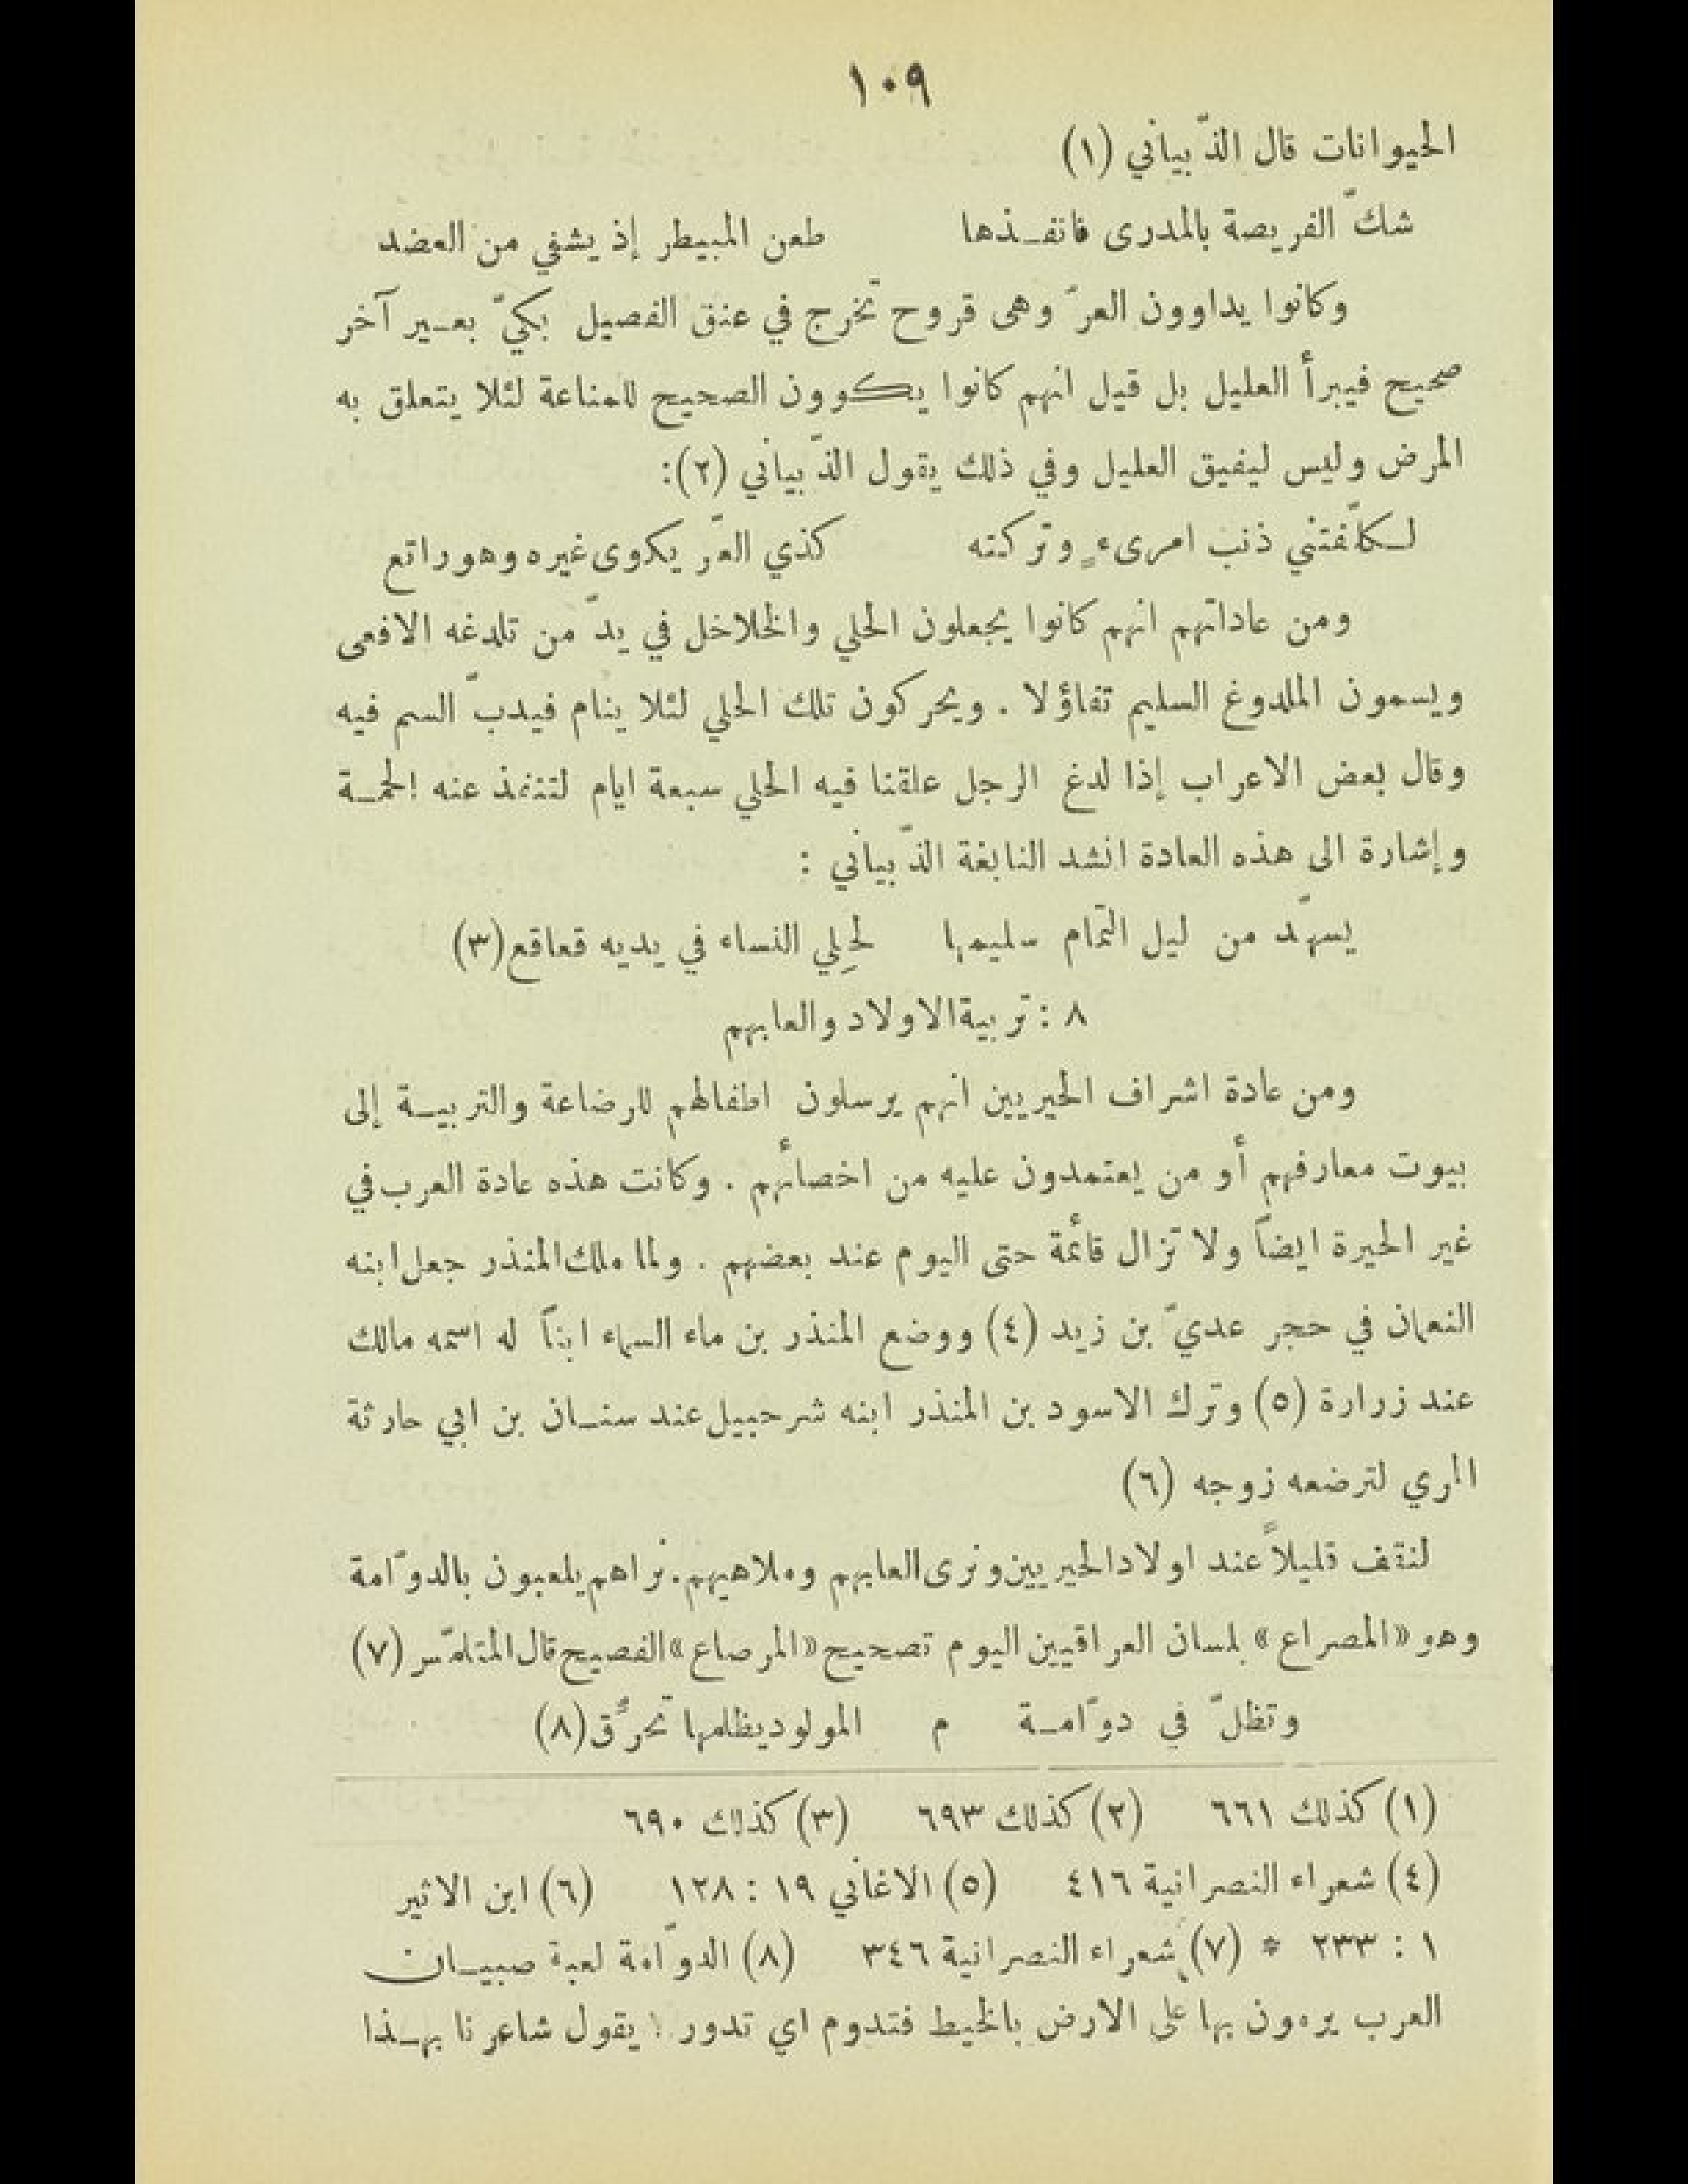 ١٠٩
الحيوانات قال الذّبياني (١)
شكّ الفريصة بالمدرى فانقـذها طعن المبيطر إذ يشفي من العضد
وكانوا يداوون العرّ وهى قروح تخرج في عنق الفصيل بكيّ بعـير آخر
صحيح فيبرأ العليل بل قيل انهم كانوا يكوون الصحيح للمناعة لئلا يتعلق به
المرض وليس ليفيق العليل وفي ذلك يقول الذّبياني (٢):
لـكلّفتني ذنب امرىءٍ وتركته كذي العرّ يكوى غيره وهو راتع
ومن عاداتهم انهم كانوا يجعلون الحلي والخلاخل في يدّ من تلدغه الافعى
ويسمون الملدوغ السليم تفاؤلا . ويحركون تلك الحلي لئلا ينام فيدبّ السم فيه
وقال بعض الاعراب إذا لدغ الرجل علقنا فيه الحلي سبعة ايام لتنفذ عنه الحمـة
وإشارة الى هذه العادة انشد النابغة الذّبياني :
يسهّد من ليل التمام سليمها لحِلي النساء في يديه قعاقع (٣)
٨ : تربية الاولاد والعابهم
ومن عادة اشراف الحيريين انهم يرسلون اطفالهم للرضاعة والتربيـة إلى
بيوت معارفهم أو من يعتمدون عليه من اخصائهم . وكانت هذه عادة العرب في
غير الحيرة ايضاً ولا تزال قائمة حتى اليوم عند بعضهم . ولما ملك المنذر جعل ابنه
النعمان في حجر عديّ بن زيد (٤) ووضع المنذر بن ماء السماء ابناً له اسمه مالك
عند زرارة (٥) وترك الاسود بن المنذر ابنه شرحبيل عند سنـان بن ابي حارثة
المري لترضعه زوجه (٦)
لنقف قليلاً عند اولاد الحيريين ونرى العابهم وملاهيهم . نراهم يلعبون بالدوّامة
وهو «المصراع» بلسان العراقيين اليوم تصحيح «المرصاع» الفصيح قال المتلمّس (٧)
وتظلّ في دوّامـة م المولود يظلمها تحرّق (٨)
(١) كذلك ٦٦١ (٢) كذلك ٦٩٣ (٣) كذلك ٦٩٠
(٤) شعراء النصرانية ٤١٦ (٥) الاغاني ١٩ : ١٢٨ (٦) ابن الاثير
١ : ٢٣٣ * (٧) شعراء النصرانية ٣٤٦ (٨) الدوّامة لعبة صبيـان
العرب يرمون بها على الارض بالخيط فتدوم اي تدور : يقول شاعرنا بهـذا